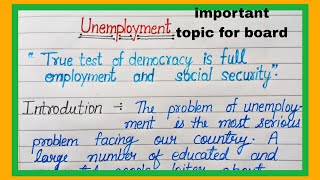 Unemployment
important
topic for board
"True test of democracy is full
employment and social security".
Introdution :- The problem of unemploy-
ment is the most serious
problem facing our country. A
large number of educated and